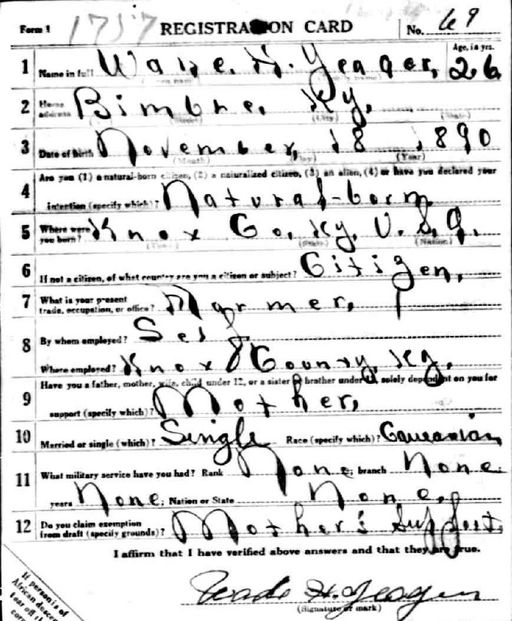 Form 1 1757 REGISTRATION CARD No. 69
1 Name in full Wade. H. Yeager, Age, in yrs. 26
2 Home address Bimble, Ky,
(Street) (City) (State)
3 Date of Birth November, 18, 1890
(Month) (Day) (Year)
4 Are you (1) a natural-born citizen, (2) a naturalized citizen, (3) an alien, (4) or have you declared your
intention (specify which)? Natural-born
5 Where were you born? Knox Co, Ky, U.S.A,
(State) (Nation)
6 If not a citizen, of what country are you a citizen or subject? Citizen,
7 What is your present trade, occupation, or office? Farmer,
8 By whom employed? Self,
Where employed? Knox County, Ky,
9 Have you a father, mother, wife, child under 12, or a sister or brother under 12, solely dependent on you for
support (specify which)? Mother,
10 Married or single (which)? Single Race (specify which)? Caucasian
11 What military service have you had? Rank None; branch None
years None; Nation or State None,
12 Do you claim exemption from draft (specify grounds)? Mother's Support
I affirm that I have verified above answers and that they are true.
Wade H. Yeager
(Signature or mark)
If person is of
African descent
tear off this